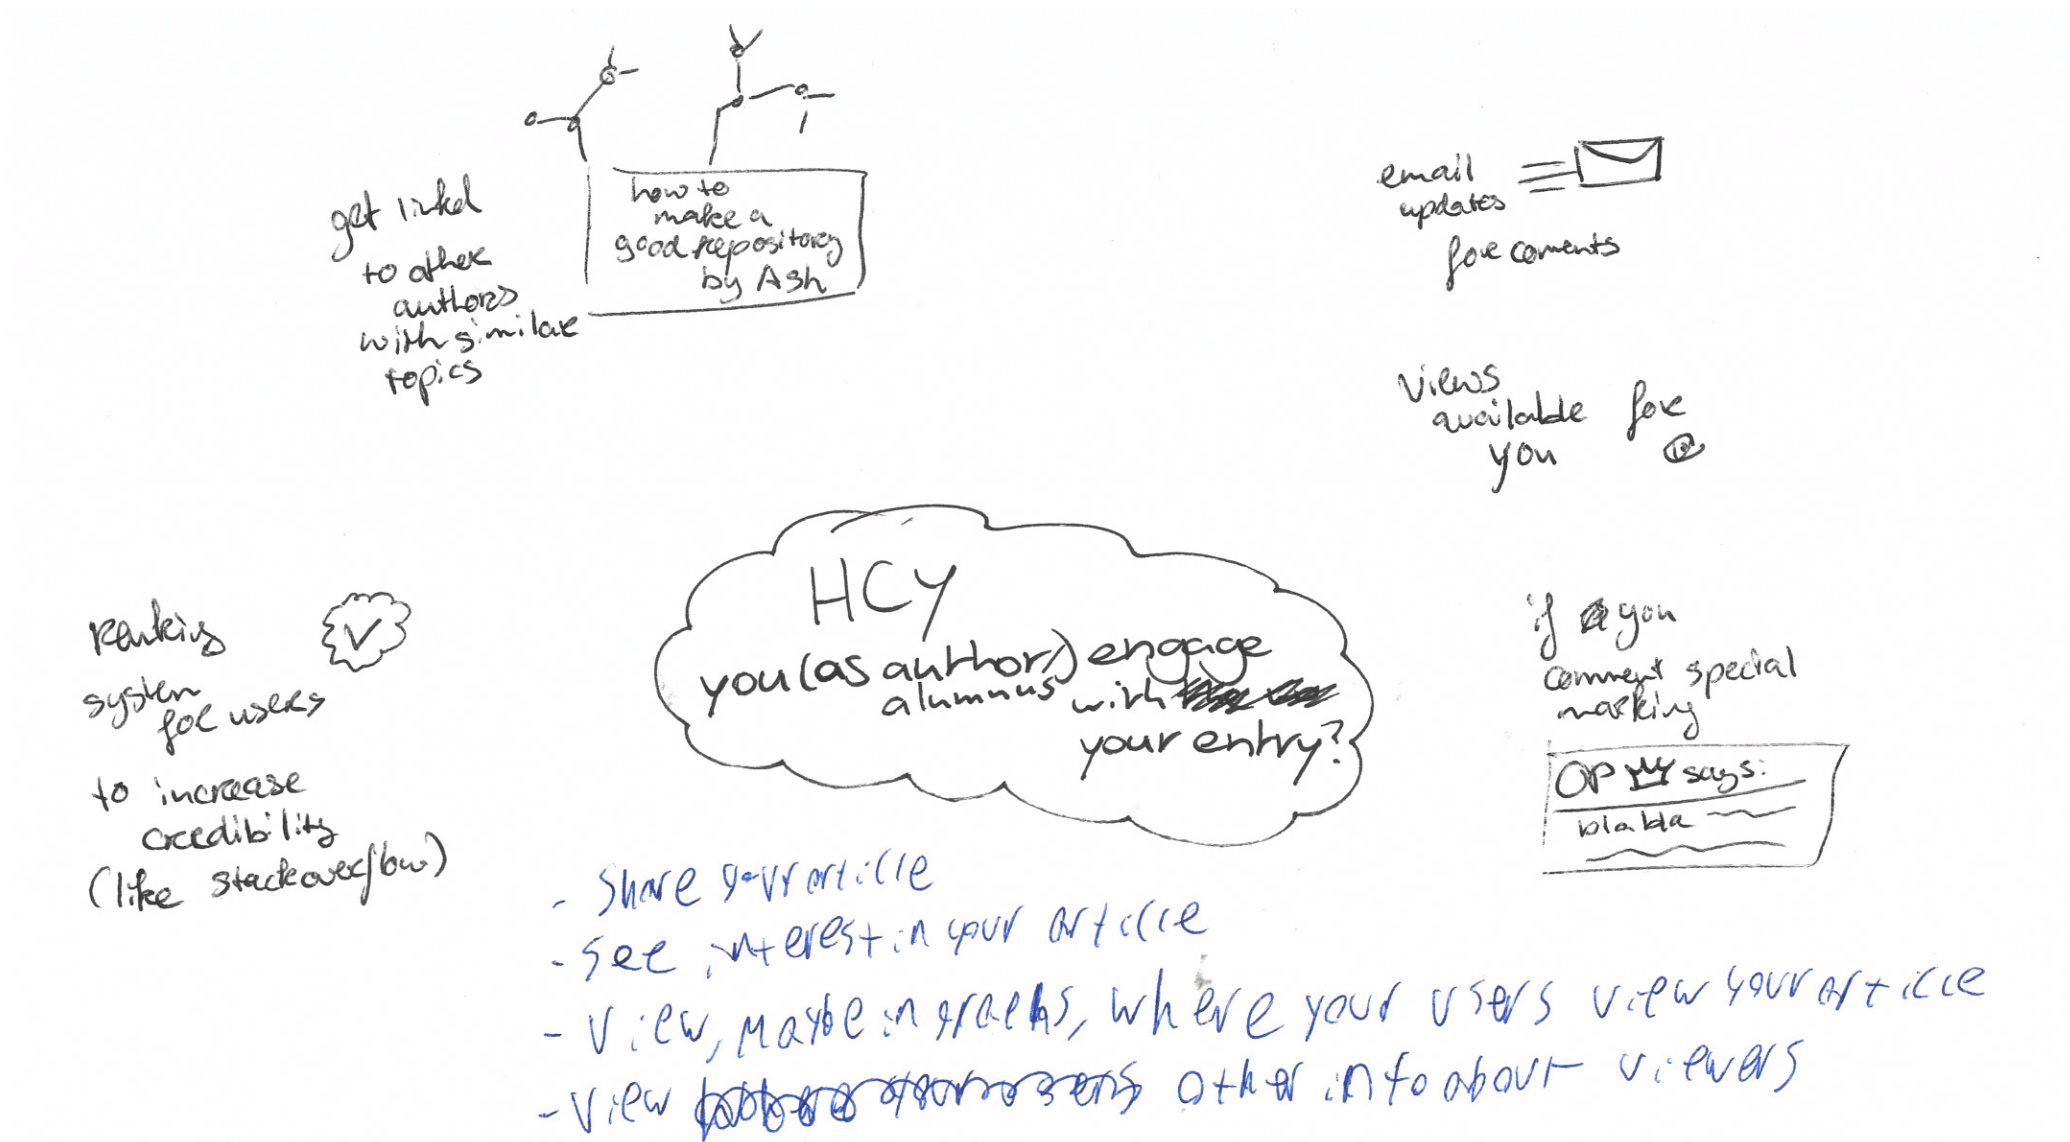 get linkd
to other
authors
with similar
topics
how to
make a
good repository
by Ash
email
updates
for coments
views
available for
you
HCY
you (as author) engage
alumnus with
your entry?
Ranking
system
for users
to increase
credibility
(like stackoverflow)
if you
comment special
marking
OP says:
blabla
- Share your article
- See interest in your article
- View, maybe in graphs, where your users view your article
- View other info about viewers